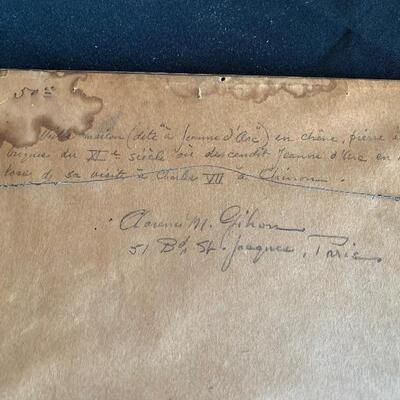 50
Vieille maison (dite "à Jeanne d'Arc") en chêne, pierre et
briques du XIe siècle où descendit Jeanne d'Arc en
lors de sa visite à Charles VII à Chinon.
Clarence M. Gihon
51 Bd. St. Jacques, Paris